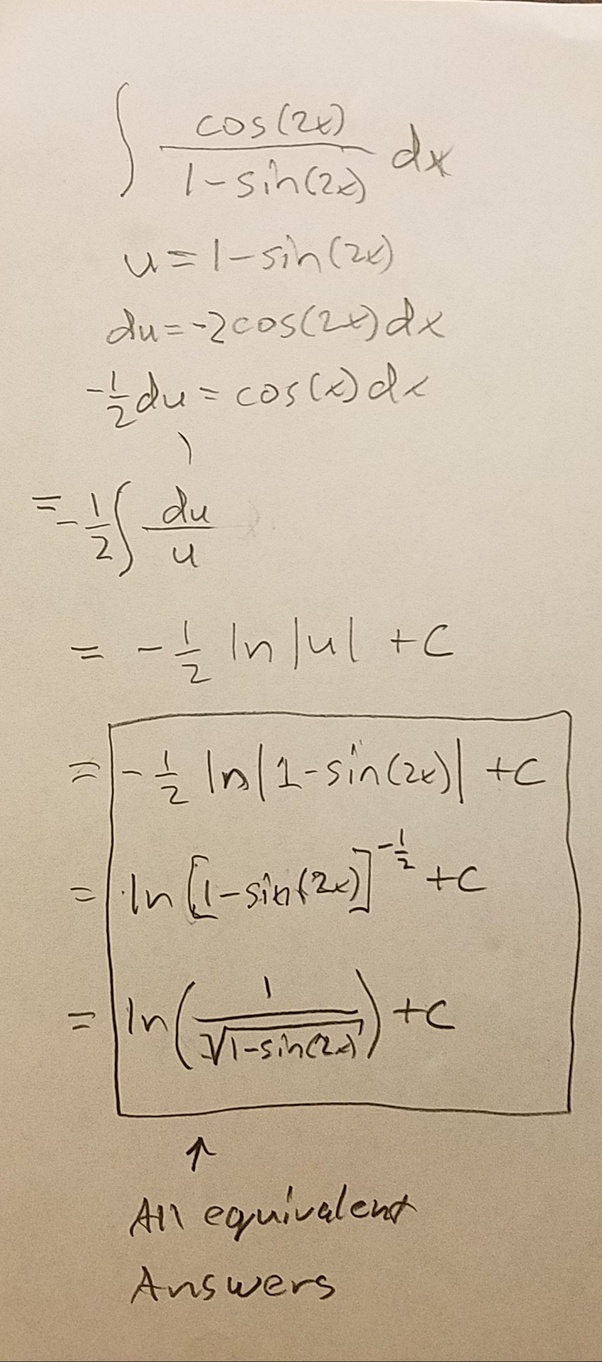 ∫ cos(2x)/(1-sin(2x)) dx
u = 1-sin(2x)
du = -2cos(2x)dx
-1/2 du = cos(x)dx
= -1/2 ∫ du/u
= -1/2 ln|u| + C
= -1/2 ln|1-sin(2x)| + C
= ln[1-sin(2x)]^(-1/2) + C
= ln(1/√(1-sin(2x))) + C
↑
All equivalent
Answers